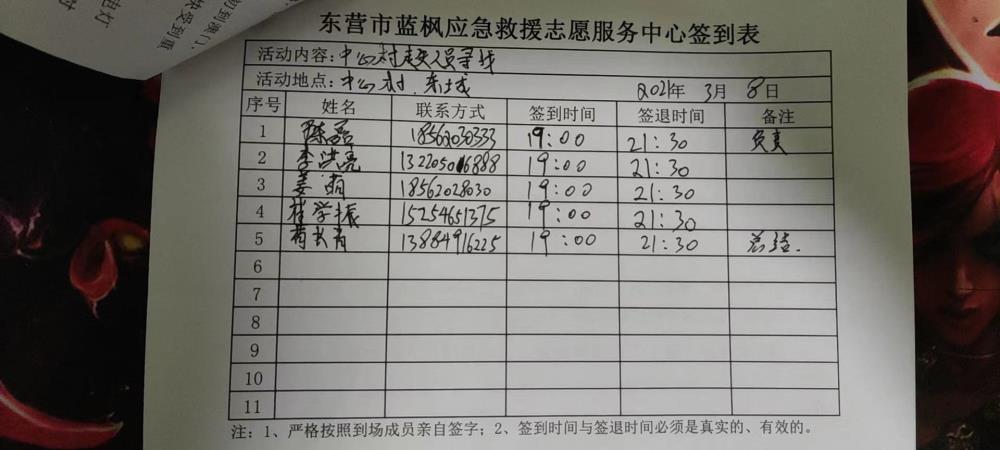 东营市蓝枫应急救援志愿服务中心签到表
活动内容：中心村走失人员寻找
活动地点：中心村．东城 2021年 3月 8日
序号 姓名 联系方式 签到时间 签退时间 备注
1 陈磊 18562030333 19:00 21:30 负责
2 李洪亮 13220506888 19:00 21:30
3 姜萌 18562028030 19:00 21:30
4 学振 15254651375 19:00 21:30
5 长青 13884916225 19:00 21:30 总结.
6
7
8
9
10
11
注：1、严格按照到场成员亲自签字；2、签到时间与签退时间必须是真实的、有效的。